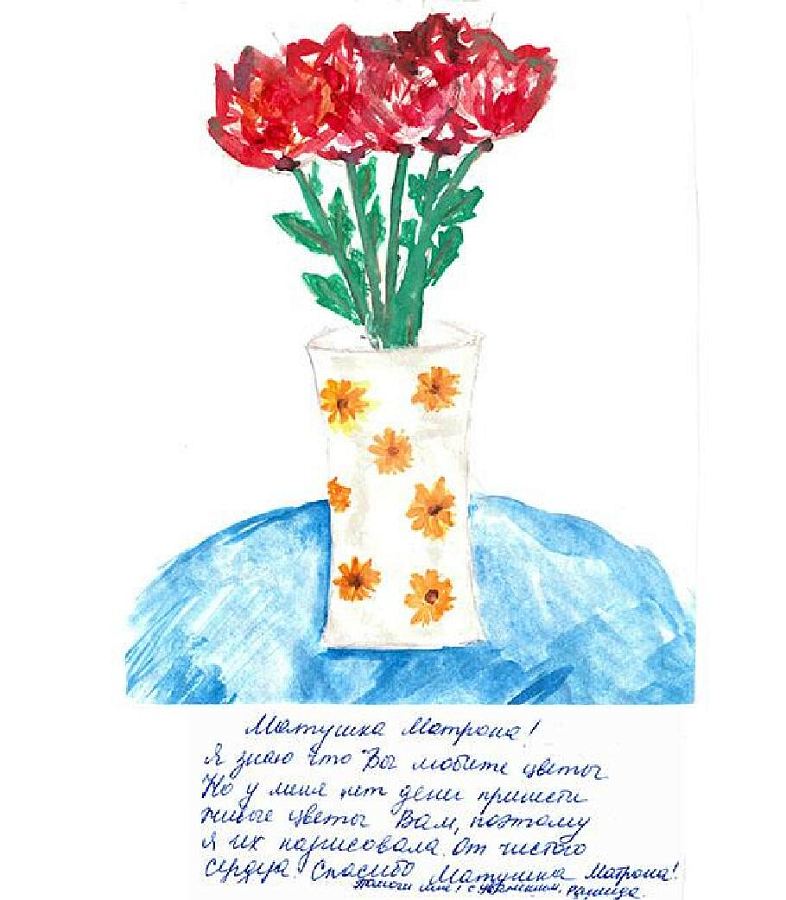 Матушка Матрона!
Я знаю что Вы любите цветы
Но у меня нет денег принести
живые цветы Вам, поэтому
я их нарисовала. От чистого
сердца. Спасибо Матушка Матрона!
Помоги мне! с уважением,